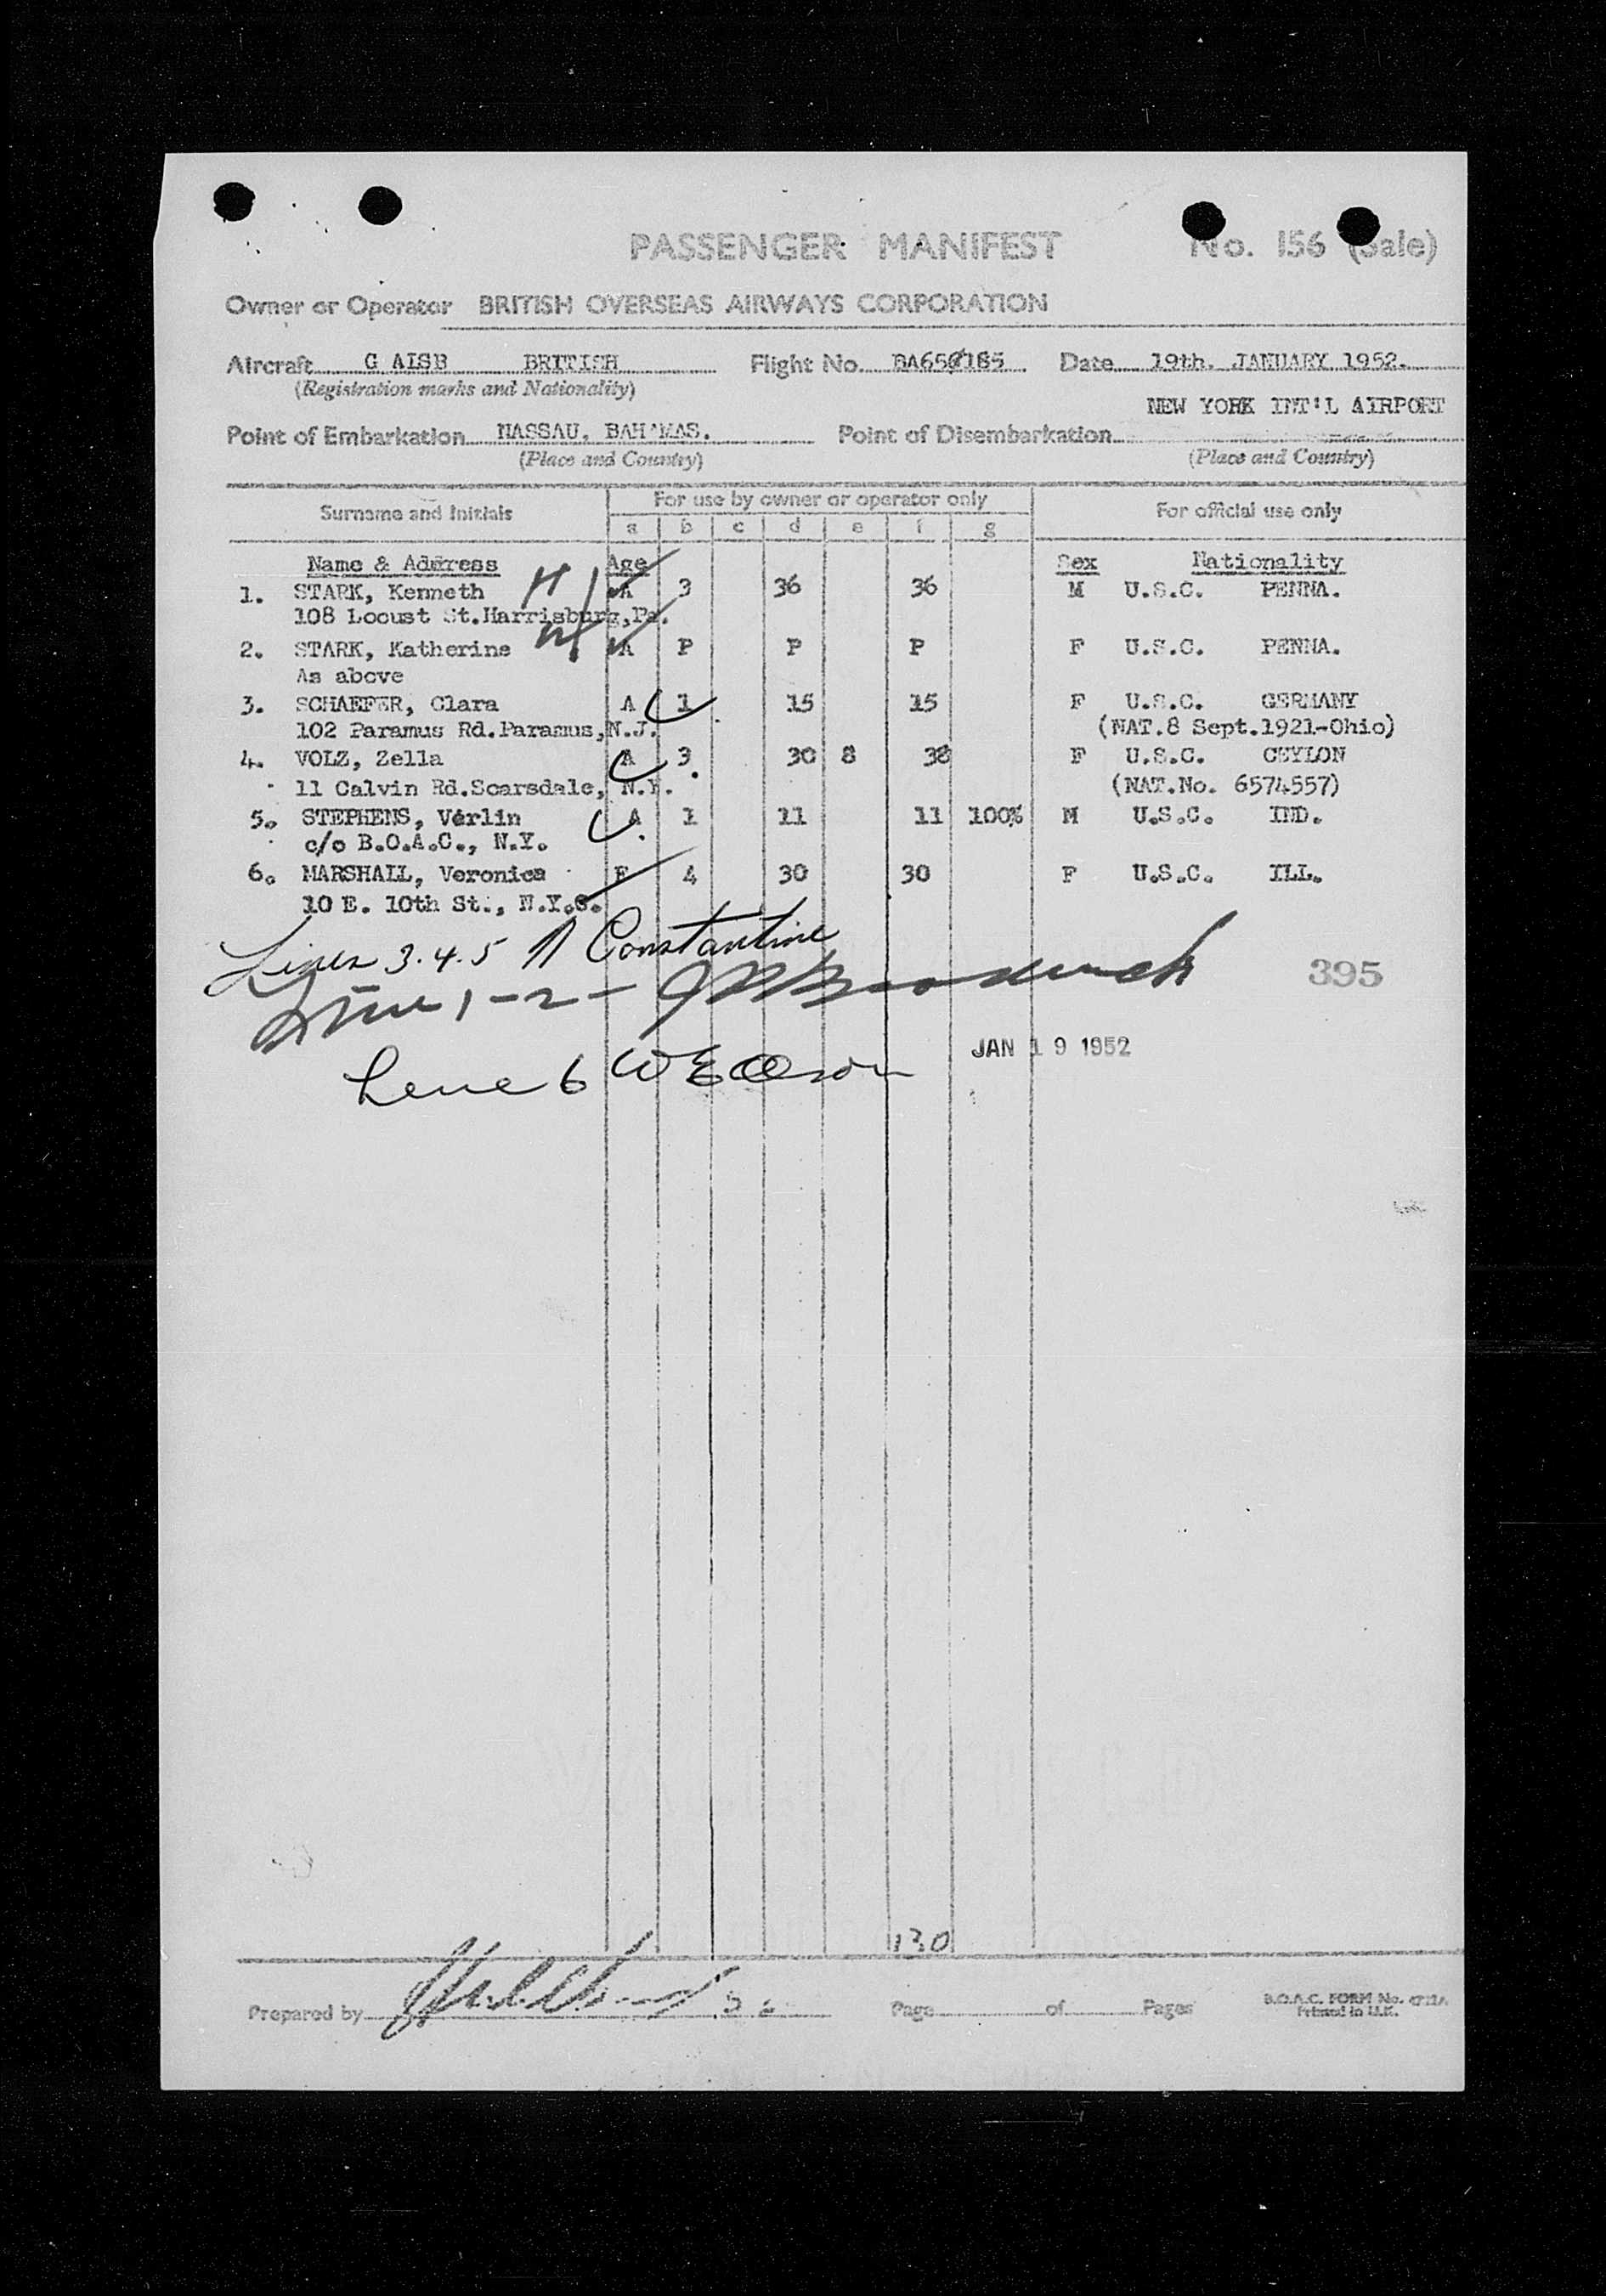 PASSENGER MANIFEST No. 156 (Sale)
Owner or Operator BRITISH OVERSEAS AIRWAYS CORPORATION
Aircraft G AISB BRITISH Flight No. BA650185 Date 19th. JANUARY 1952.
(Registration marks and Nationality)
NEW YORK INT'L AIRPORT
Point of Embarkation NASSAU, BAH'MAS. Point of Disembarkation
(Place and Country) (Place and Country)
Surname and Initials For use by owner or operator only For official use only
a b c d e f g
Name & Address Age Sex Nationality
1. STARK, Kenneth H A 3 36 36 M U.S.C. PENNA.
108 Locust St.Harrisburg,Pa.
2. STARK, Katherine W A P P P F U.S.C. PENNA.
As above
3. SCHAEFER, Clara A 1 15 15 F U.S.C. GERMANY
102 Paramus Rd.Paramus,N.J. (NAT.8 Sept.1921-Ohio)
4. VOLZ, Zella A 3 30 8 38 F U.S.C. CEYLON
11 Calvin Rd.Scarsdale, N.Y. (NAT.No. 6574557)
5. STEPHENS, Verlin A 1 11 11 100% M U.S.C. IND.
c/o B.O.A.C., N.Y.
6. MARSHALL, Veronica F 4 30 30 F U.S.C. ILL.
10 E. 10th St., N.Y.C.
Lines 3.4.5 A Constantine
Line 1-2-
395
JAN 19 1952
Line 6 W E Olson
130
Prepared by Page of Pages
B.O.A.C. FORM No.
Printed in U.K.